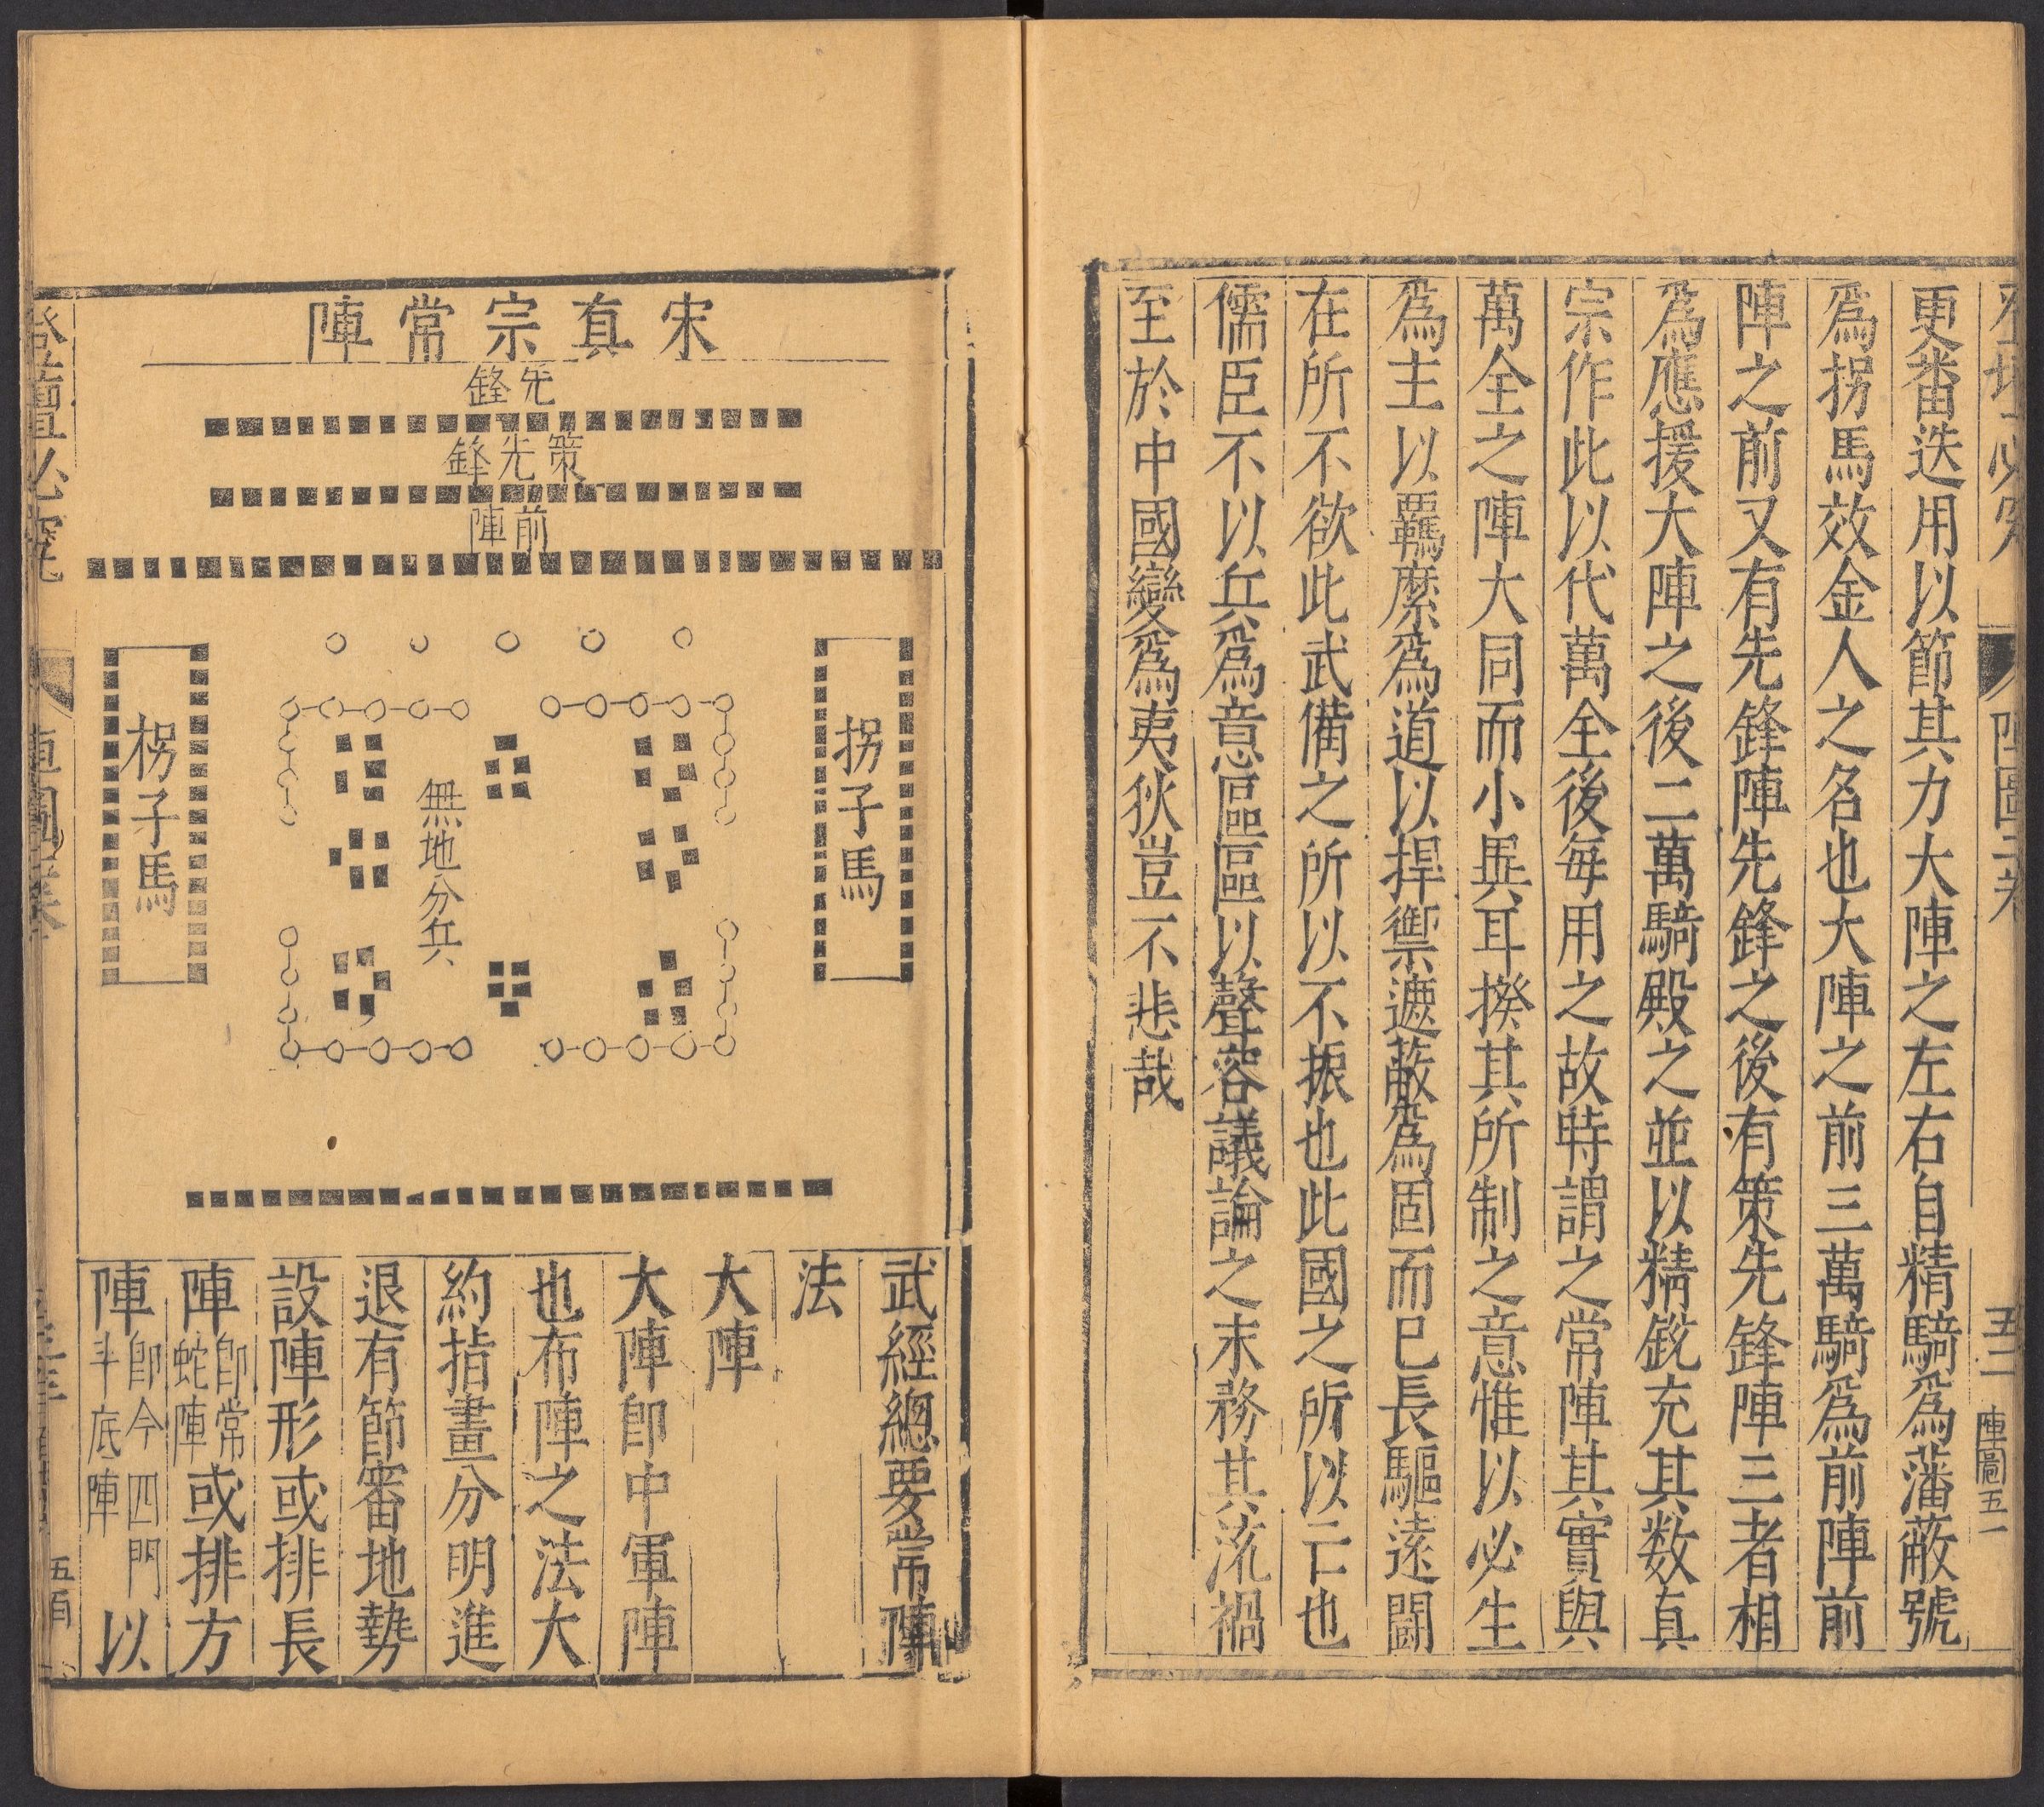 陣圖二卷
五二
陣圖五一
更畨迭用以節其力大陣之左右自精騎爲藩蔽號
爲拐馬效金人之名也大陣之前三萬騎爲前陣前
陣之前又有先鋒陣先鋒之後有策先鋒陣三者相
爲應援大陣之後二萬騎殿之並以精銳充其数真
宗作此以代萬全後每用之故時謂之常陣其實與
萬全之陣大同而小異耳揆其所制之意惟以必生
爲主以羈縻爲道以捍禦遮蔽爲固而已長驅遠闘
在所不欲此武備之所以不振也此國之所以亡也
儒臣不以兵爲意區區以聲容議論之末務其流禍
至於中國變爲夷狄豈不悲哉
宋真宗常陣
先鋒
策先鋒
前陣
拐子馬
無地分兵
拐子馬
武經總要常陣
法
大陣
大陣即中軍陣
也布陣之法大
約指畫分明進
退有節審地勢
設陣形或排長
陣即常蛇陣或排方
陣即今四門斗底陣以
登壇必究